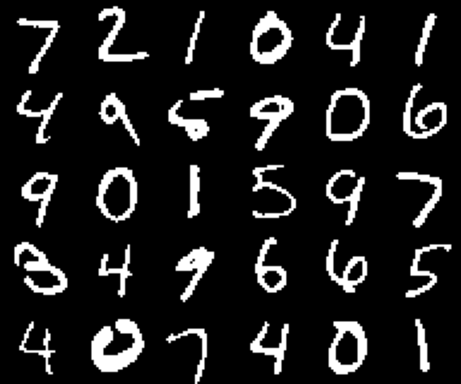 7 2 1 0 4 1
4 9 5 9 0 6
9 0 1 5 9 7
3 4 9 6 6 5
4 0 7 4 0 1